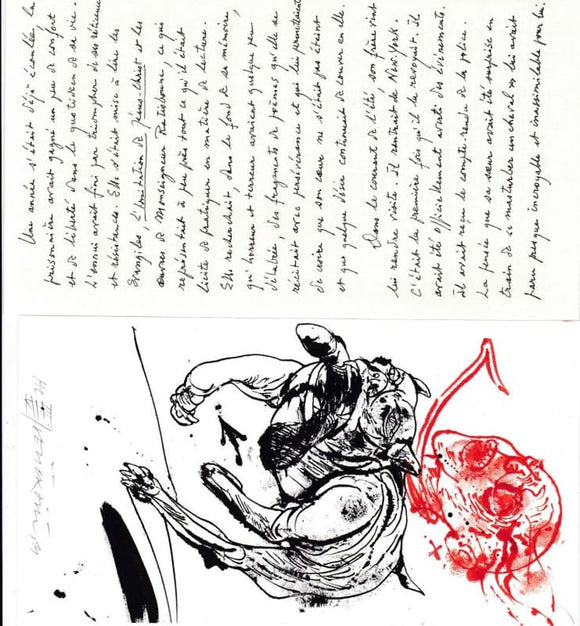 Une année s'était déjà écoulée la
prisonnière avait gagné un peu de confort
et de liberté dans le quotidien de sa vie.
L'ennui avait fini par triompher de ses réticences
et résistances. Elle s'était mise à lire les
Évangiles, L'Imitation de Jésus-Christ et les
œuvres de Monseigneur ce qui
représentait à peu près tout ce qu'il était
licite de pratiquer en matière de lecture.
Elle recherchait dans le fond de sa mémoire,
qu'horreur et terreur avaient quelque peu
délabrée, des fragments de poèmes qu'elle se
récitait avec persévérance et qui lui permettaient
de croire que son cœur ne s'était pas éteint
et que quelque désir continuait de couver en elle.
Dans le courant de l'été, son frère vint
lui rendre visite. Il rentrait de New York.
C'était la première fois qu'il la revoyait. Il
avait été officiellement averti des événements.
Il avait reçu le compte-rendu de la police.
La pensée que sa sœur avait été surprise en
train de se masturber un cheval lui avait
paru presque incroyable et inassimilable pour lui.